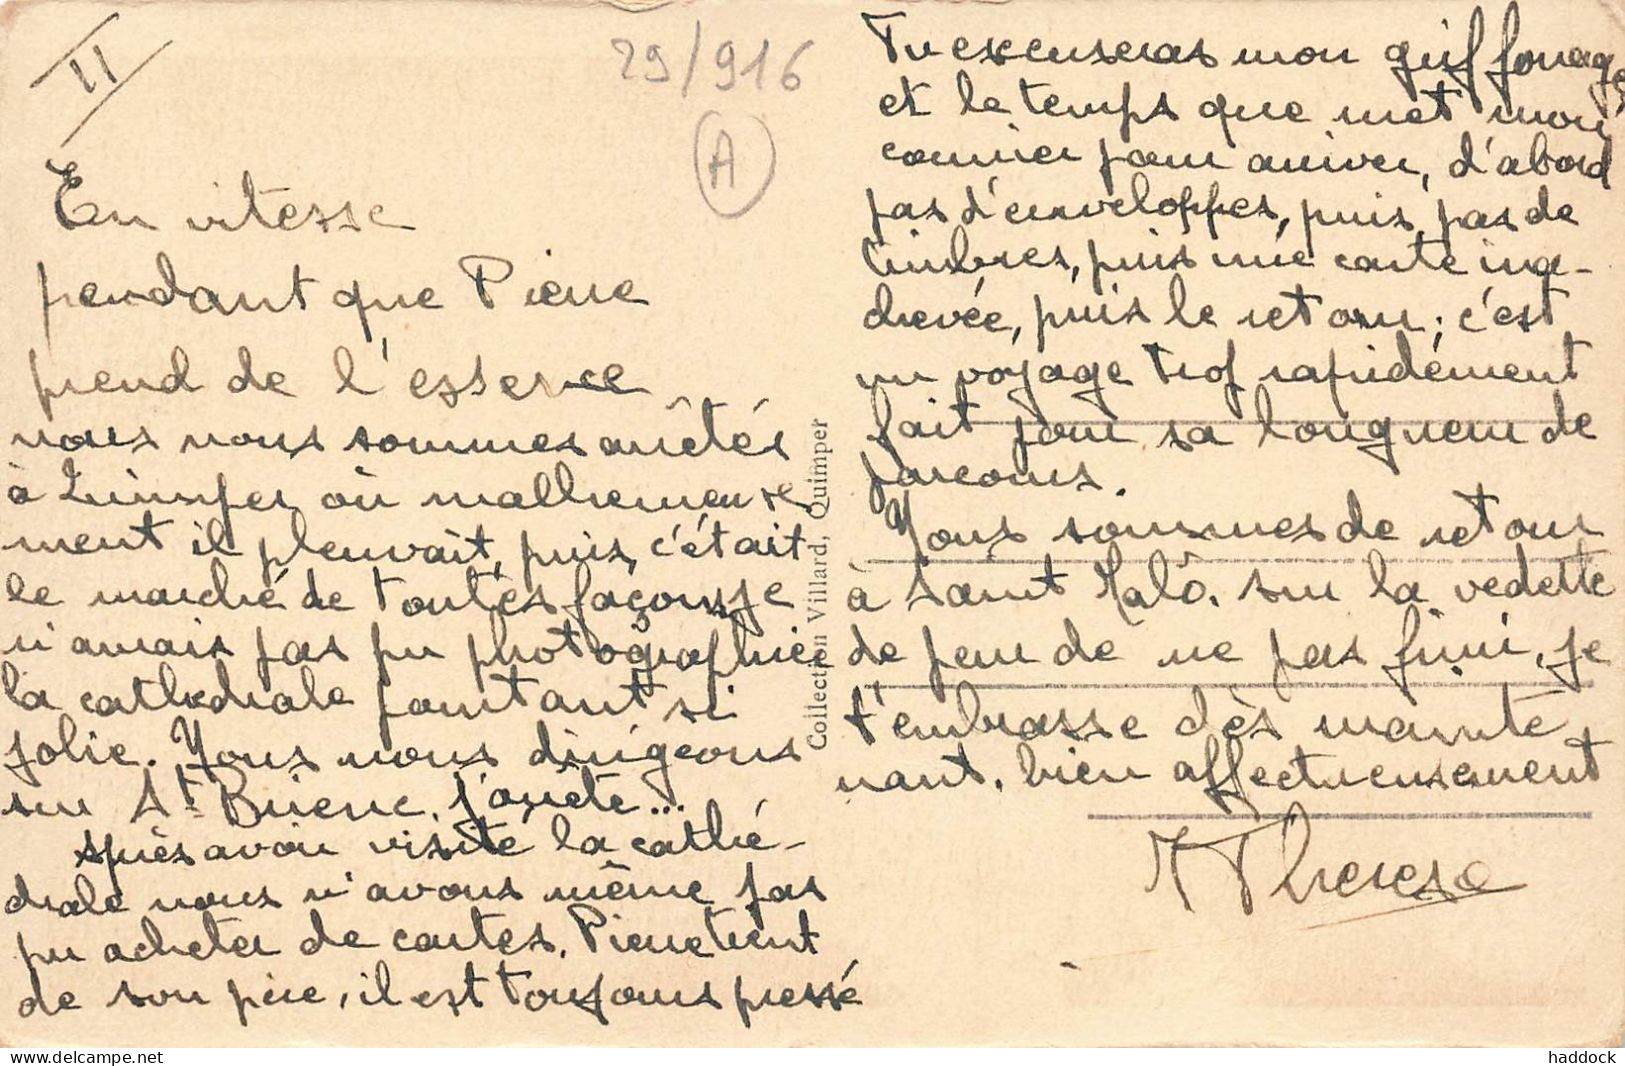 II
29/916
A
En vitesse
pendant que Pierre
prend de l'essence
nous nous sommes arrêtés
à Quimper où malheureuse
ment il pleuvait, puis, c'était
le marché de toutes façons je
n'aurais pas pu photographier
la cathédrale pourtant si
jolie. Nous nous dirigeons
sur St Brieuc. J'arrête...
Après avoir visité la cathé-
drale nous n'avons même pas
pu acheter de cartes. Pierre tient
de son père, il est toujours pressé
Collection Villard, Quimper
Tu excuseras mon griffonage
et le temps que met mon
courrier pour arriver, d'abord
pas d'enveloppes, puis pas de
timbres, puis une carte ina-
chevée, puis le retour; c'est
un voyage trop rapidement
fait pour sa longueur de
parcours.
Nous sommes de retour
à Saint Malô. sur la vedette
de peur de ne pas finir, je
t'embrasse dès mainte
nant. bien affectueusement
M Therese
haddock